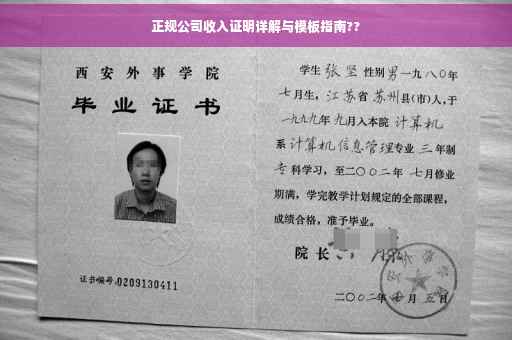 正规公司收入证明详解与模板指南??
西安外事学院
毕业证书
证书编号:0209130411
学生 张坚 性别 男 一九八〇年
七月生, 江苏省 苏州县(市)人,于
一九九九年 九月入本院 计算机
系 计算机信息管理专业 三 年制
专 科学习, 至二〇〇二年 七月修业
期满, 学完教学计划规定的全部课程,
成绩合格, 准予毕业。
院长
二〇〇二年 七 月 五 日